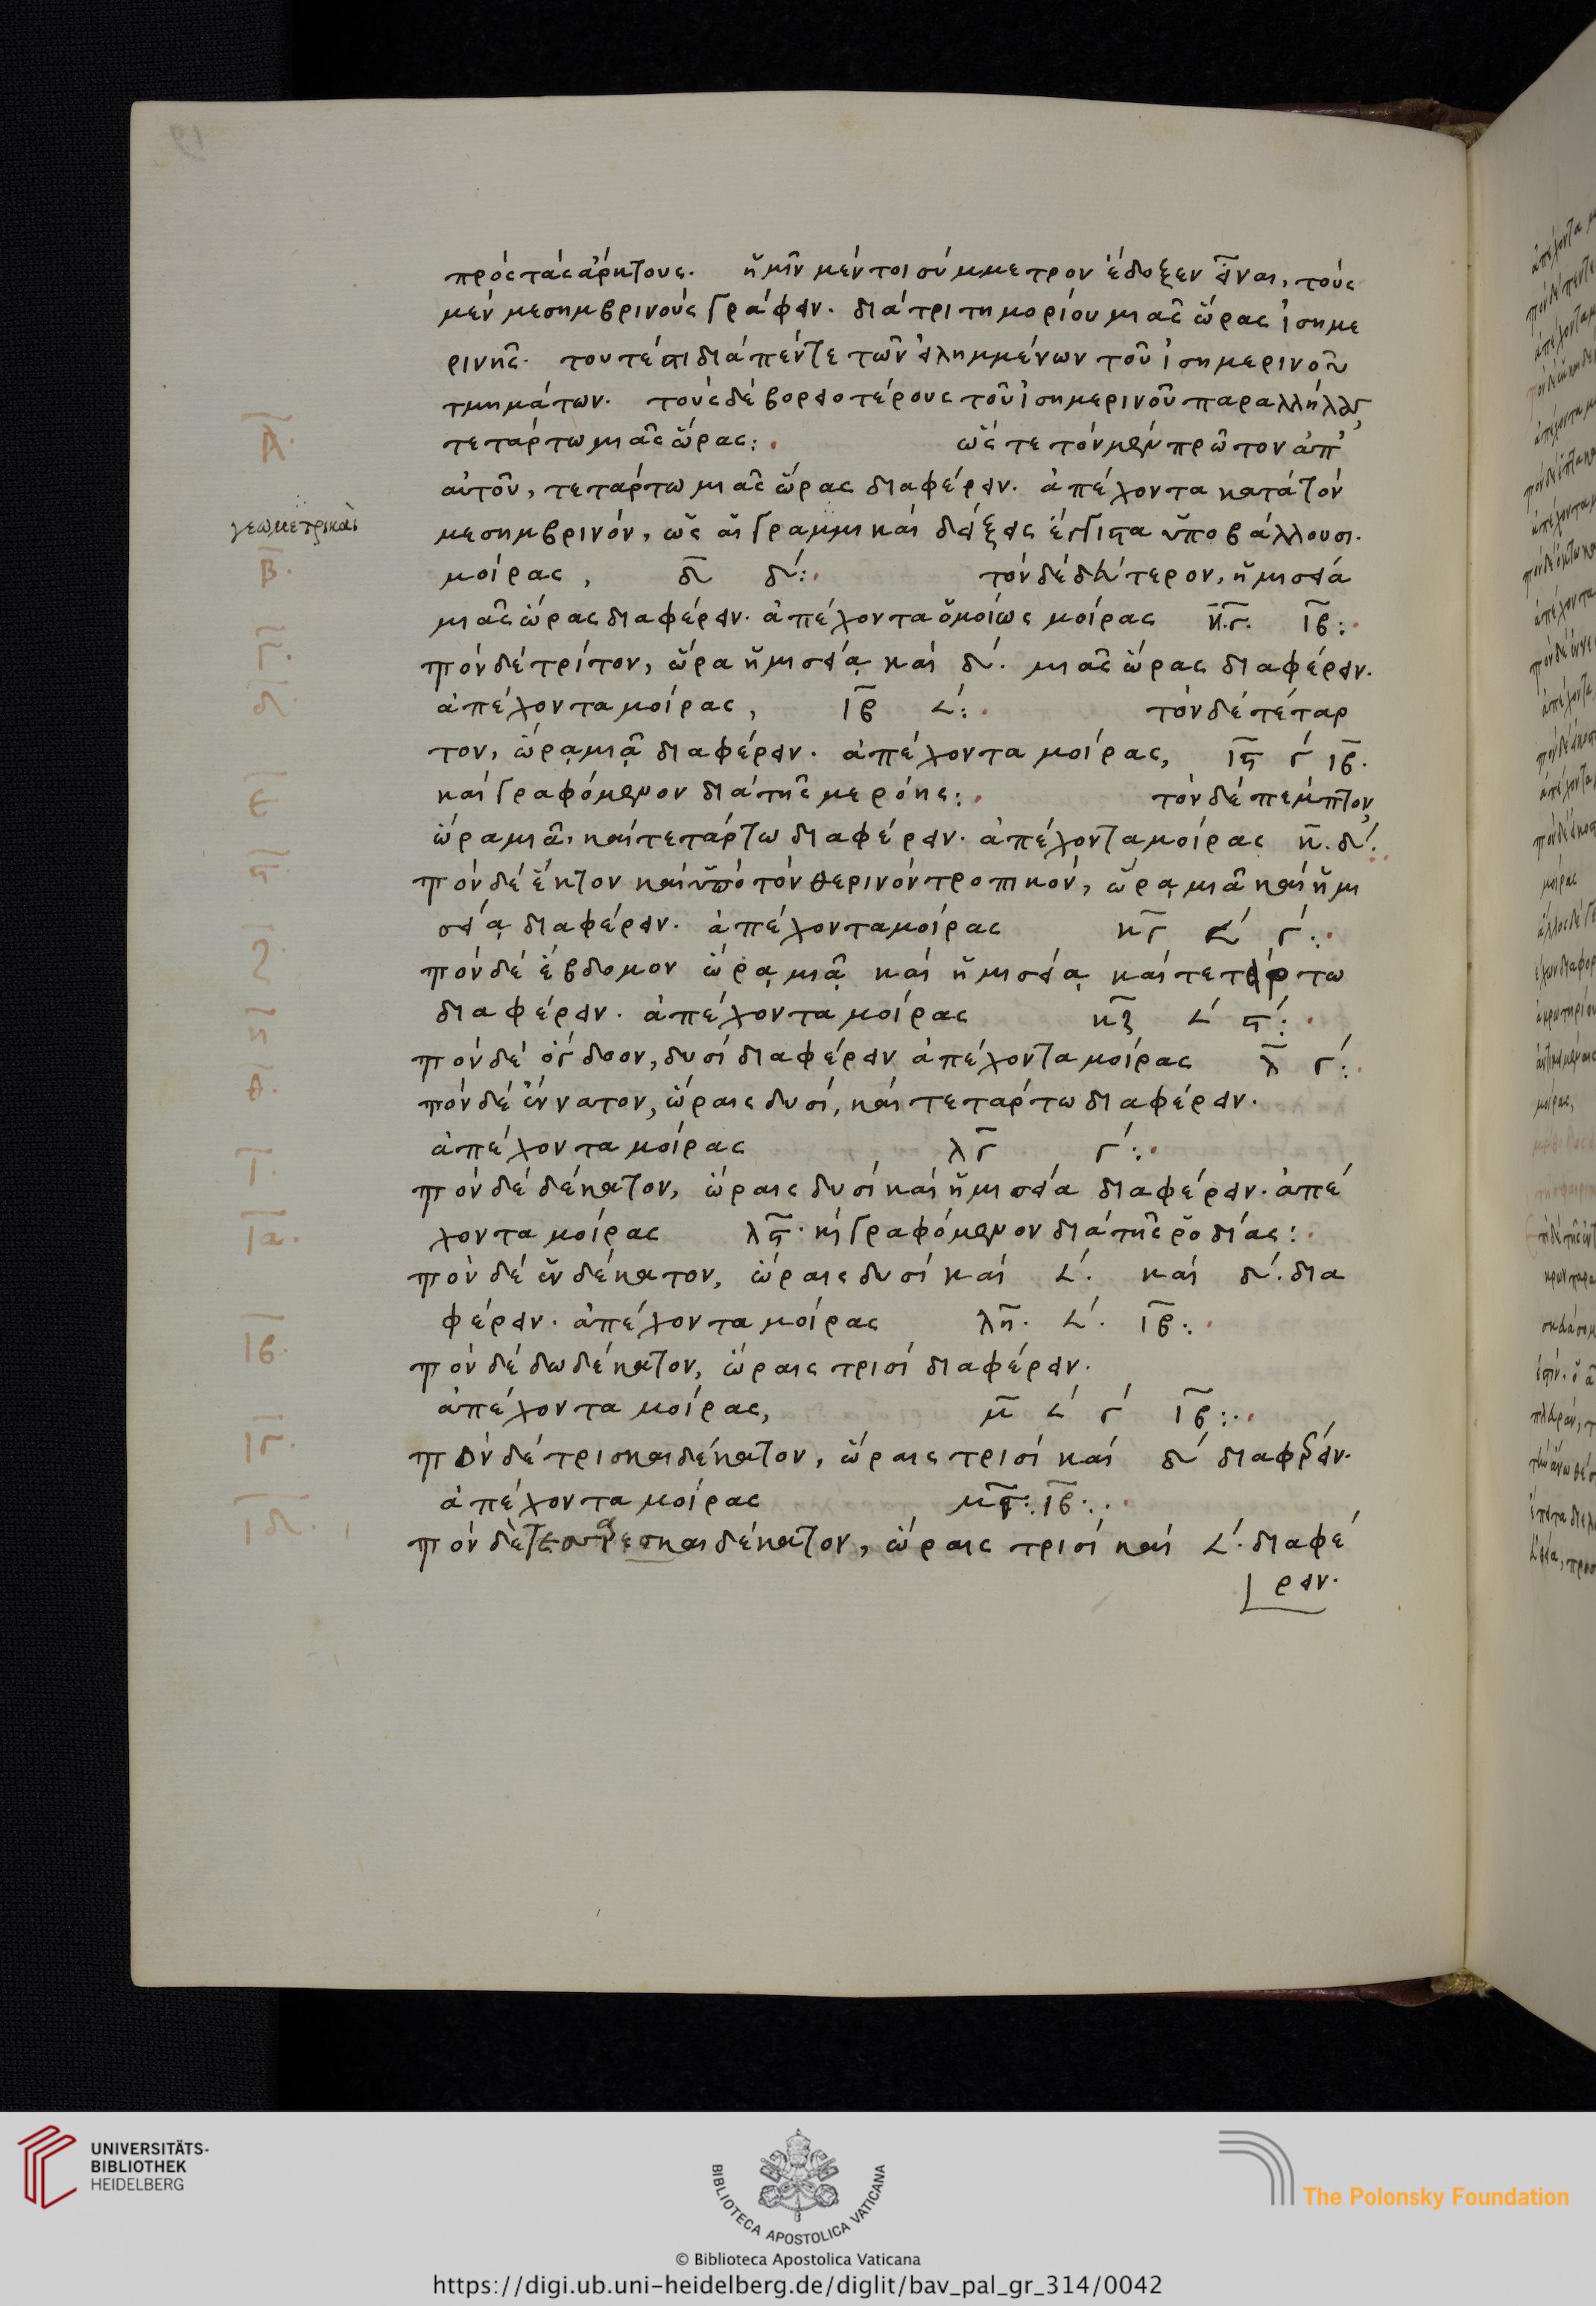 πρὸς τὰς ἄρκτους. ἡμῖν μέντοι σύμμετρον ἔδοξεν εἶναι, τοὺς
μὲν μεσημβρινοὺς γράφειν. διὰ τριτημορίου μιᾶς ὥρας ἰσημε
ρινῆς. τουτέστι διὰ πέντε τῶν εἰλημμένων τοῦ ἰσημερινοῦ
τμημάτων. τοὺς δὲ βορειοτέρους τοῦ ἰσημερινοῦ παραλλήλους
τετάρτω μιᾶς ὥρας:. ὥστε τὸν μὲν πρῶτον ἀπ'
Α.
αὐτοῦ, τετάρτω μιᾶς ὥρας διαφέρειν. ἀπέχοντα κατὰ τὸν
γεωμετρικαὶ
μεσημβρινόν, ὡς αἱ γραμμικαὶ δείξεις ἔγγιστα ὑποβάλλουσι.
Β.
μοίρας, δ̅ δ΄:. τὸν δὲ δεύτερον, ἡμισεία
μιᾶς ὥρας διαφέρειν. ἀπέχοντα ὁμοίως μοίρας η̅. γ. ιβ:.
Γ.
τὸν δὲ τρίτον, ὥρα ἡμισείᾳ καὶ δ΄. μιᾶς ὥρας διαφέρειν.
Δ.
ἀπέχοντα μοίρας, ιβ ∠΄:. τὸν δὲ τέταρ
τον, ὥρᾳ μιᾷ διαφέρειν. ἀπέχοντα μοίρας, ιϛ γ΄ ιβ.
Ε
καὶ γραφόμενον διὰ τῆς μερόης:. τὸν δὲ πέμπτον,
ὥρα μιᾶ, καὶ τετάρτω διαφέρειν. ἀπέχοντα μοίρας κ̅. δ΄.
ϛ.
τὸν δὲ ἕκτον καὶ ὑπὸ τὸν θερινὸν τροπικόν, ὥρᾳ μιᾶ καὶ ἡμι
σείᾳ διαφέρειν. ἀπέχοντα μοίρας κγ ∠΄ γ΄:.
Ζ
τὸν δὲ ἕβδομον ὥρᾳ μιᾷ καὶ ἡμισείᾳ καὶ τετάρτω
διαφέρειν. ἀπέχοντα μοίρας κζ ∠΄ ϛ΄:.
η
τὸν δὲ ὄγδοον, δυσὶ διαφέρειν ἀπέχοντα μοίρας λ̅ γ΄:.
θ.
τὸν δὲ ἔννατον, ὥραις δυσί, καὶ τετάρτω διαφέρειν.
ἀπέχοντα μοίρας λγ γ΄:.
Ι.
τὸν δὲ δέκατον, ὥραις δυσὶ καὶ ἡμισεία διαφέρειν. ἀπέ
ΙΑ.
χοντα μοίρας λϛ. κ̀ γραφόμενον διὰ τῆς ῥοδίας:.
τὸν δὲ ἑνδέκατον, ὥραις δυσὶ καὶ ∠΄. καὶ δ΄. δια
ΙΒ.
φέρειν. ἀπέχοντα μοίρας λη. ∠΄. ιβ:.
τὸν δὲ δωδέκατον, ὥραις τρισὶ διαφέρειν.
ἀπέχοντα μοίρας, μ̅ ∠΄ γ΄ ιβ:.
ΙΓ.
τὸν δὲ τρισκαιδέκατον, ὥραις τρισὶ καὶ δ΄ διαφέρειν.
ἀπέχοντα μοίρας μγ: ιβ:.
ΙΔ.
τὸν δὲ τεσσαρεσκαιδέκατον, ὥραις τρισὶ καὶ ∠΄. διαφέ
ρειν.
UNIVERSITÄTS-
BIBLIOTHEK
HEIDELBERG
BIBLIOTECA APOSTOLICA VATICANA
© Biblioteca Apostolica Vaticana
The Polonsky Foundation
https://digi.ub.uni-heidelberg.de/diglit/bav_pal_gr_314/0042